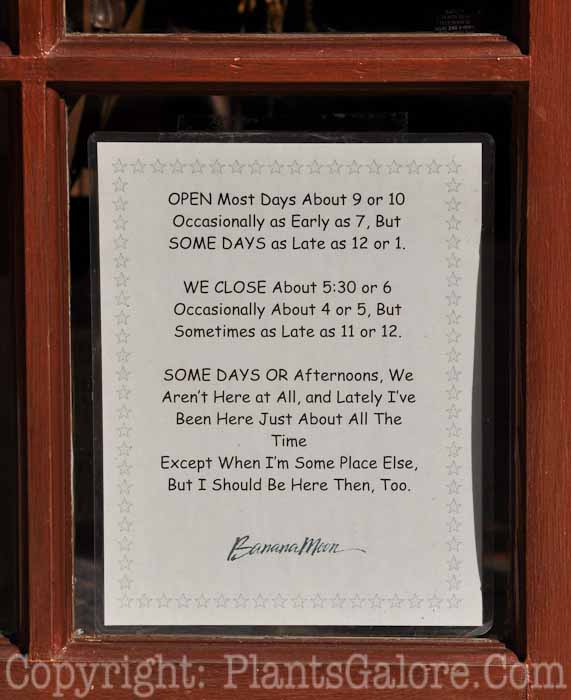 OPEN Most Days About 9 or 10
Occasionally as Early as 7, But
SOME DAYS as Late as 12 or 1.
WE CLOSE About 5:30 or 6
Occasionally About 4 or 5, But
Sometimes as Late as 11 or 12.
SOME DAYS OR Afternoons, We
Aren't Here at All, and Lately I've
Been Here Just About All The
Time
Except When I'm Some Place Else,
But I Should Be Here Then, Too.
BananaMoon
Copyright: PlantsGalore.Com